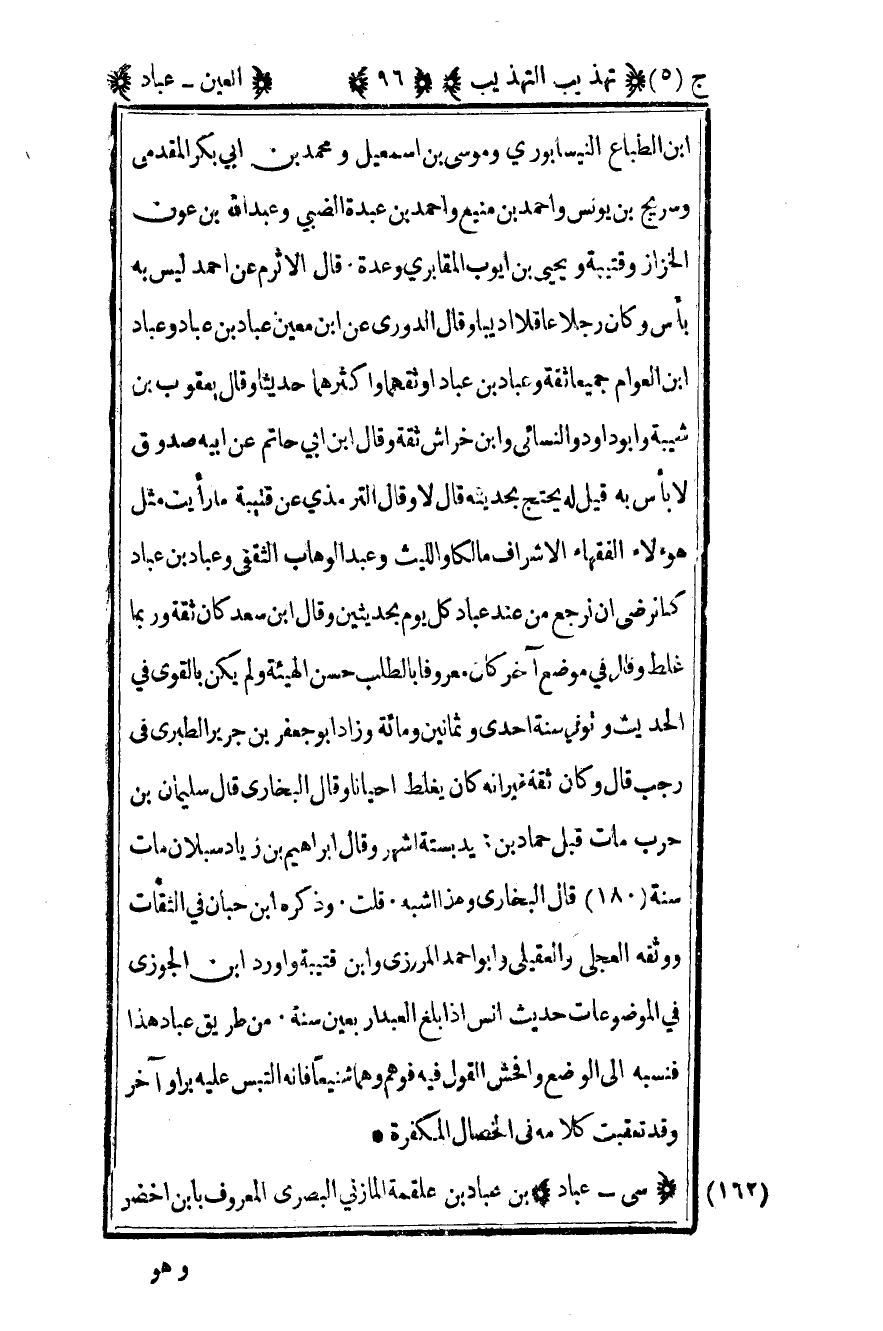 ج (٥) تهذيب التهذيب ٩٦ العين - عباد
ابن الطباع النيسابوري وموسى بن اسمعيل ومحمد بن ابي بكر المقدمى
وسريج بن يونس واحمد بن منيع واحمد بن عبدة الضبي وعبد الله بن عون
الخزاز وقتيبة ويحيى بن ايوب المقابري وعدة ٠ قال الاثرم عن احمد ليس به
بأس وكان رجلا عاقلا اديبا وقال الدورى عن ابن معين عباد بن عباد وعباد
ابن العوام جميعا ثقة وعباد بن عباد اوثقهما واكثرهما حديثا وقال يعقوب بن
شيبة وابوداود والنسائى وابن خراش ثقة وقال ابن ابي حاتم عن ابيه صدوق
لا بأس به قيل له يحتج بحديثه قال لا وقال الترمذي عن قتيبة ما رأيت مثل
هؤلاء الفقهاء الاشراف مالك والليث وعبد الوهاب الثقفى وعباد بن عباد
كنا نرضى ان نرجع من عند عباد كل يوم بحديثين وقال ابن سعد كان ثقة وربما
غلط وقال في موضع آخر كان معروفا بالطلب حسن الهيئة ولم يكن بالقوى في
الحديث وتوفي سنة احدى وثمانين ومائة وزاد ابو جعفر بن جرير الطبرى فى
رجب قال وكان ثقة غير انه كان يغلط احيانا وقال البخارى قال سليمان بن
حرب مات قبل حماد بن زيد بستة اشهر وقال ابراهيم بن زياد سبلان مات
سنة (١٨٠) قال البخارى وهذا اشبه ٠ قلت ٠ وذكره ابن حبان في الثقات
ووثقه العجلى والعقيلى وابو احمد المرزى وابن قتيبة واورد ابن الجوزى
في الموضوعات حديث انس اذا بلغ العبد اربعين سنة ٠ من طريق عباد هذا
فنسبه الى الوضع وافحش القول فيه فوهم وهما شنيعاً فانه التبس عليه براو آخر
وقد تعقبت كلامه فى الخصال المكفرة •
(١٦٢) سى - عباد بن عباد بن علقمة المازني البصرى المعروف بابن اخضر
وهو